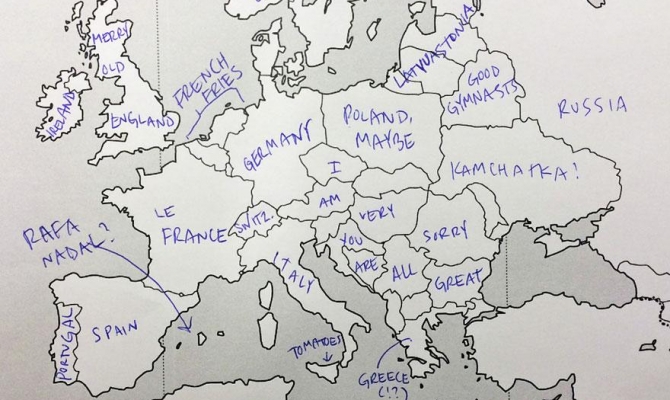 MERRY
OLD
ENGLAND
IRELAND
FRENCH
FRIES
LATVUASTONIA
GOOD
GYMNASTS
RUSSIA
GERMANY
POLAND,
MAYBE
KAMCHATKA!
I
AM
VERY
SORRY
YOU
ARE
ALL
GREAT
LE
FRANCE
SWITZ.
ITALY
RAFA
NADAL?
PORTUGAL
SPAIN
TOMATOES
GREECE
(!?)